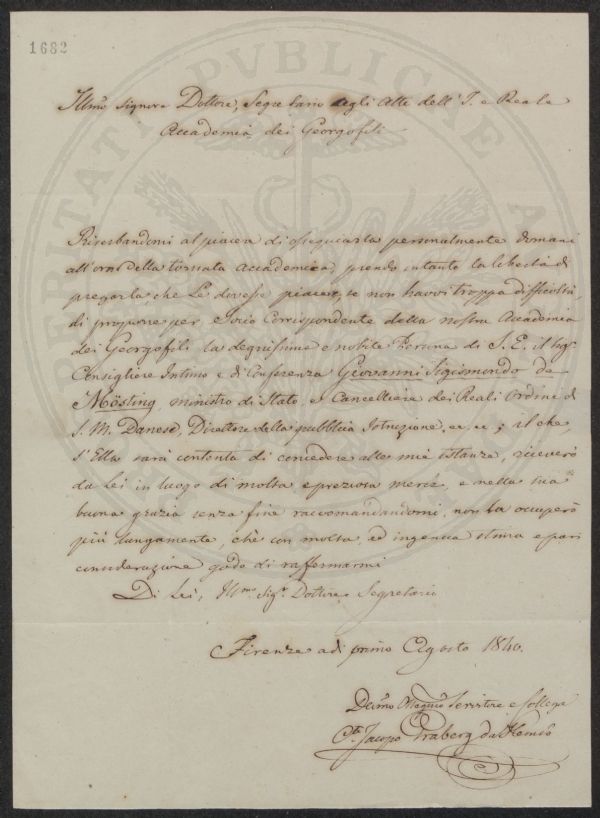 1682
PROSPERITATI PVBLICAE AVGENDAE
Illmo Signore Dottore, Segretario degli Atti dell' I. e Reale
Accademia dei Georgofili
Riserbandomi al piacere di ossequiarla personalmente domani
all'ora della tornata accademica, prendo intanto la libertà di
pregarla che Le divese piacer, se non havvi troppa difficoltà,
di proporre per Socio Corrispondente della nostra Accademia
dei Georgofili la degnissima e nobile Persona di S. E. il Sigr
Consigliere Intimo e di Conferenza Giovanni Sigismondo de
Mösting, ministro di Stato, e Cancelliere dei Reali Ordini di
S. M. Danese, Direttore della pubblica Istruzione, ec. ec.; il che,
s'Ella sarà contenta di concedere alle mie istanze, riceverò
da Lei in luogo di molta e preziosa mercè, e nella sua
buona grazia senza fine raccomandandomi, non La occuperò
più lungamente, chè con molta ed ingenua stima e pari
considerazione godo di raffermarmi
Di Lei, Illmo Sigr Dottore Segretario
Firenze adì primo Agosto 1840.
Devmo Servitore e Collega
Cte Jacopo Graberg da Hemsö